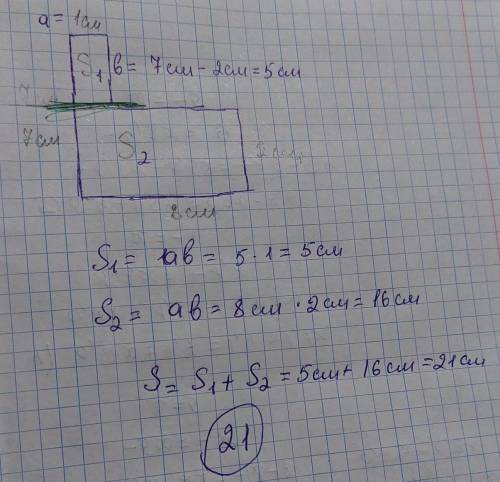 a = 1см
S₁ в = 7см - 2см = 5см
7см
S₂
8см
S₁ = ав = 5 · 1 = 5см
S₂ = ав = 8см · 2см = 16см
S = S₁ + S₂ = 5см + 16см = 21см
21